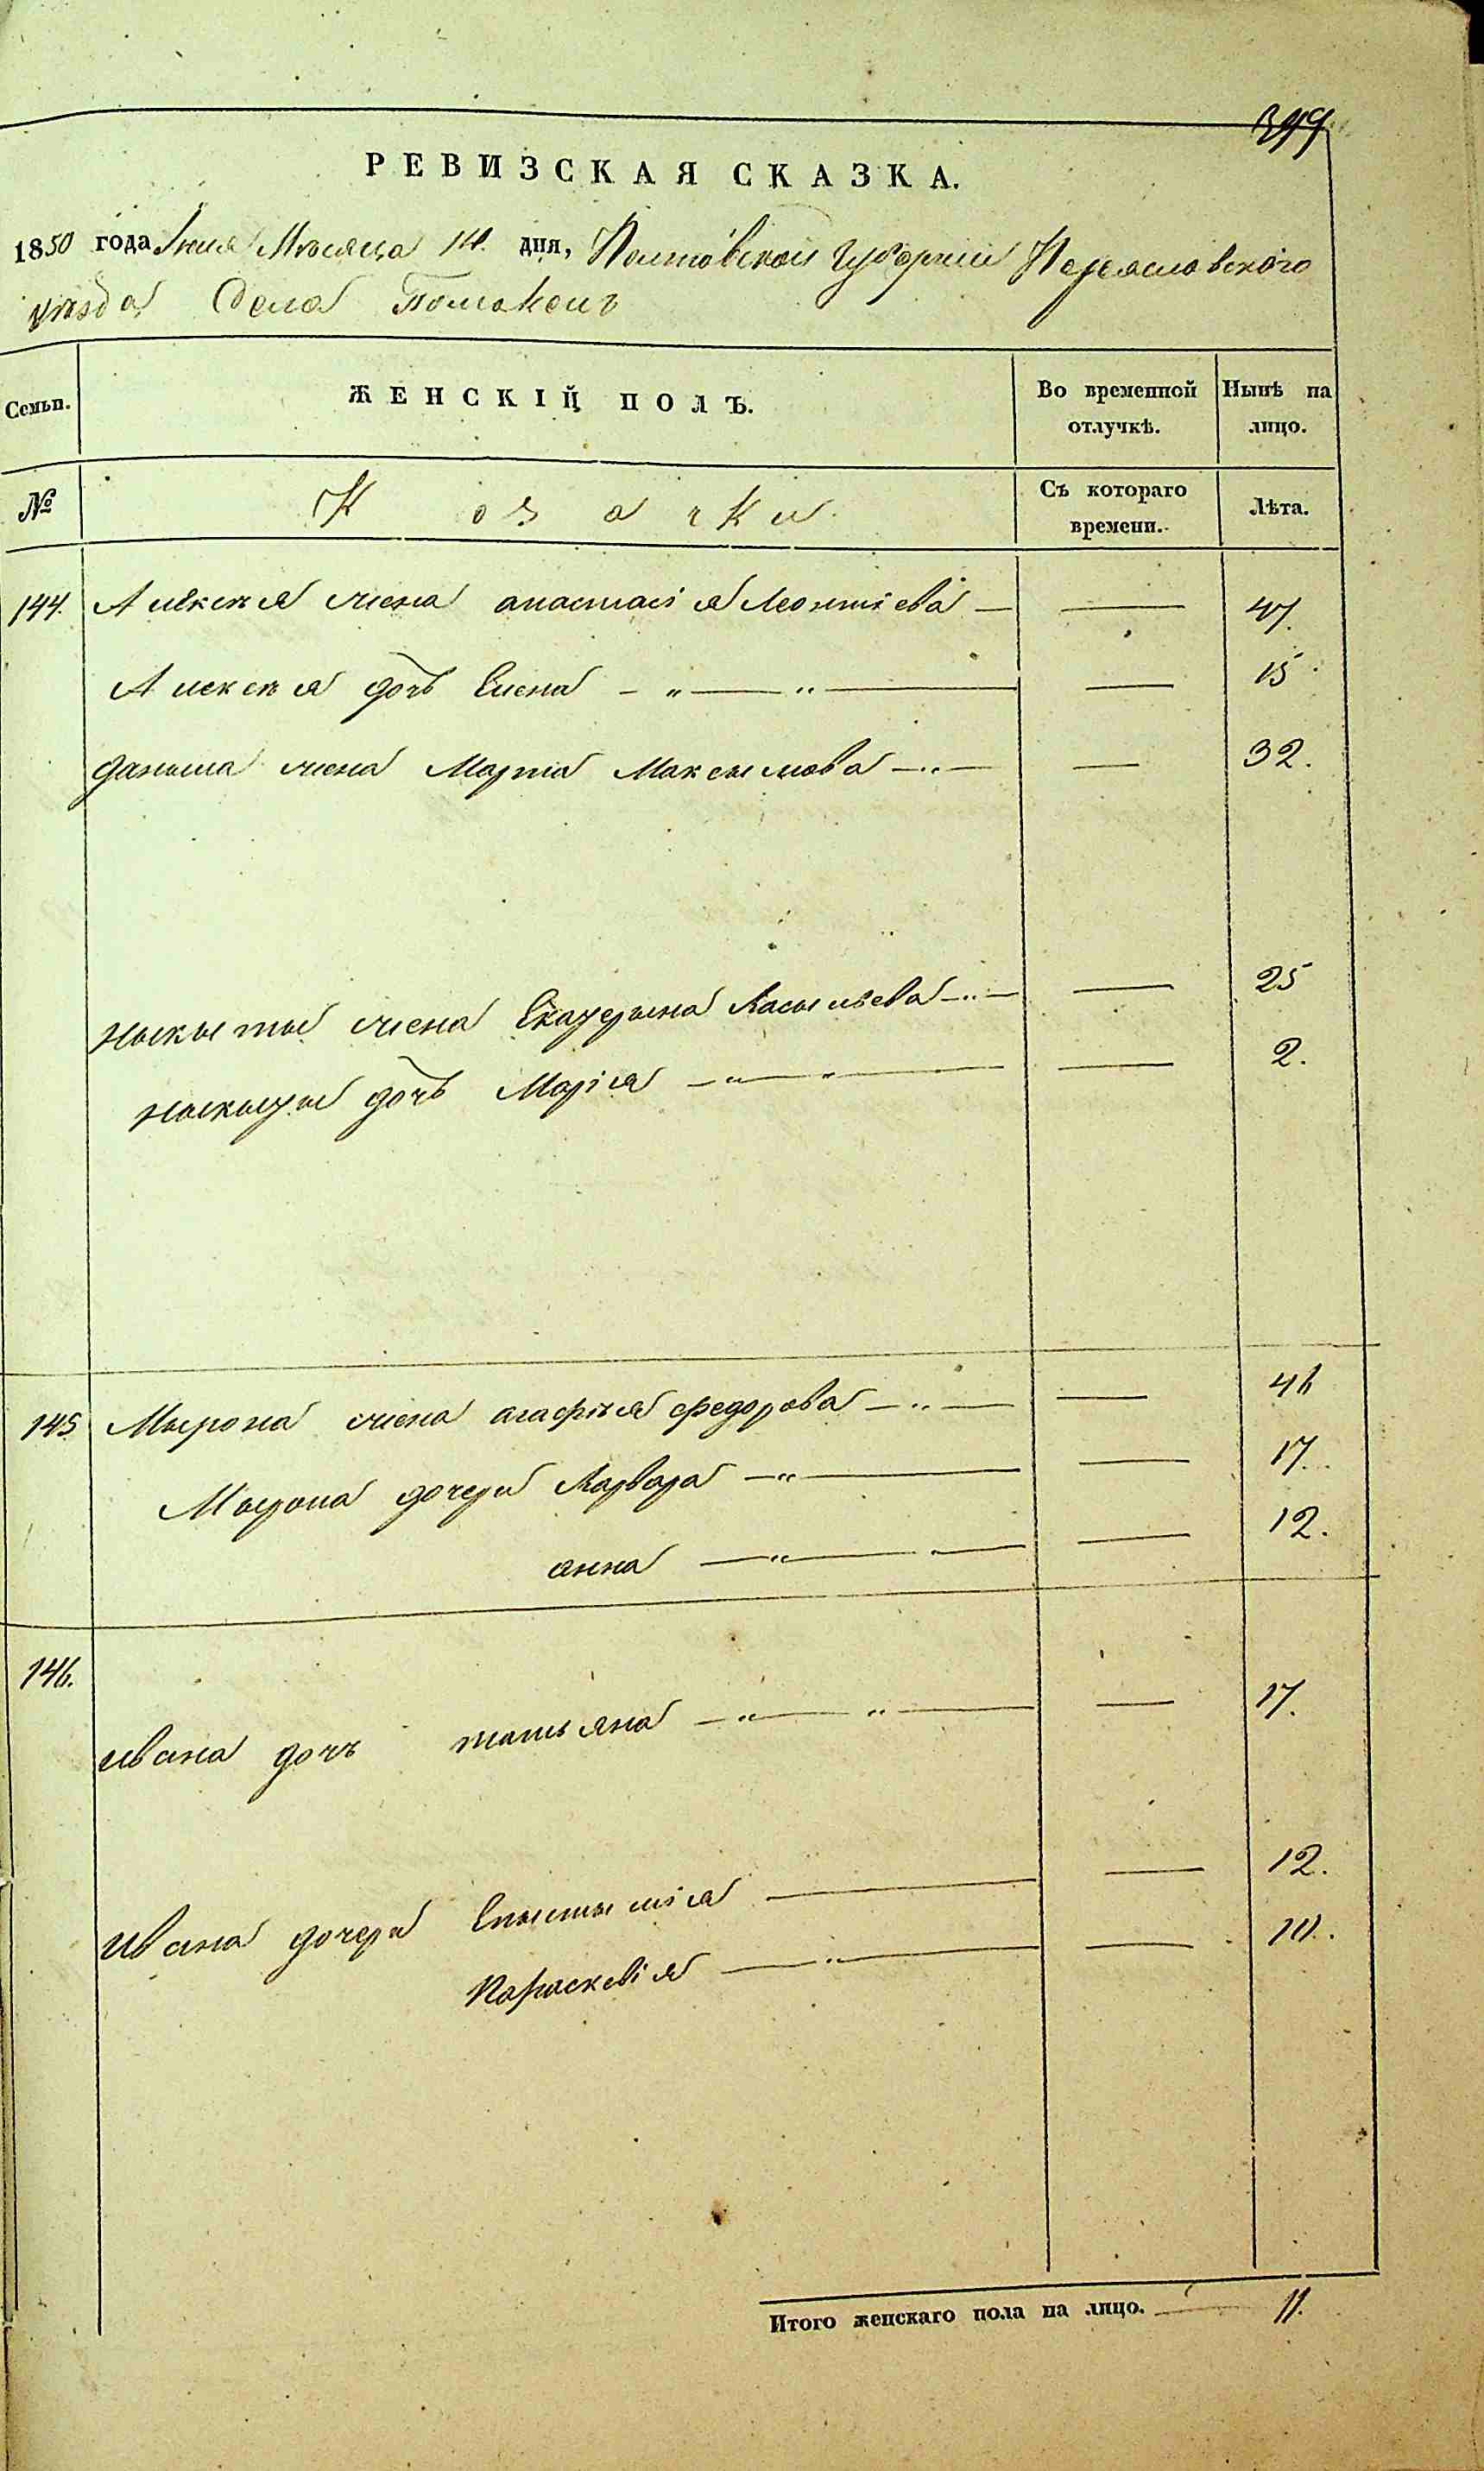 349
РЕВИЗСКАЯ СКАЗКА.
1850 года Іюня Мѣсяца 10 дня, Полтовской Губерніи Переясловского
уѣзда Села Помоклей
Семьи. ЖЕНСКІЙ ПОЛЪ. Во временной отлучкѣ. Нынѣ на лицо.
№ Козачки Съ котораго времени. Лѣта.
144. Алексѣя жена анастасія Леонтіева — — 47.
Алексѣя дочь Елена — — 15
данила жена Марта Максымова — — 32.
ныкыты жена Екатерына Васыльева — — 25
ныкыты дочь Марія — — 2.
145 Мырона жена агафія федорова — — 46
Мырона дочери Варвара — — 17.
анна — — 12.
146.
ивана дочь татьяна — — 17.
ивана дочери Епыстымія — — 12.
Параскевія — — 10.
Итого женскаго пола на лицо. — 11.